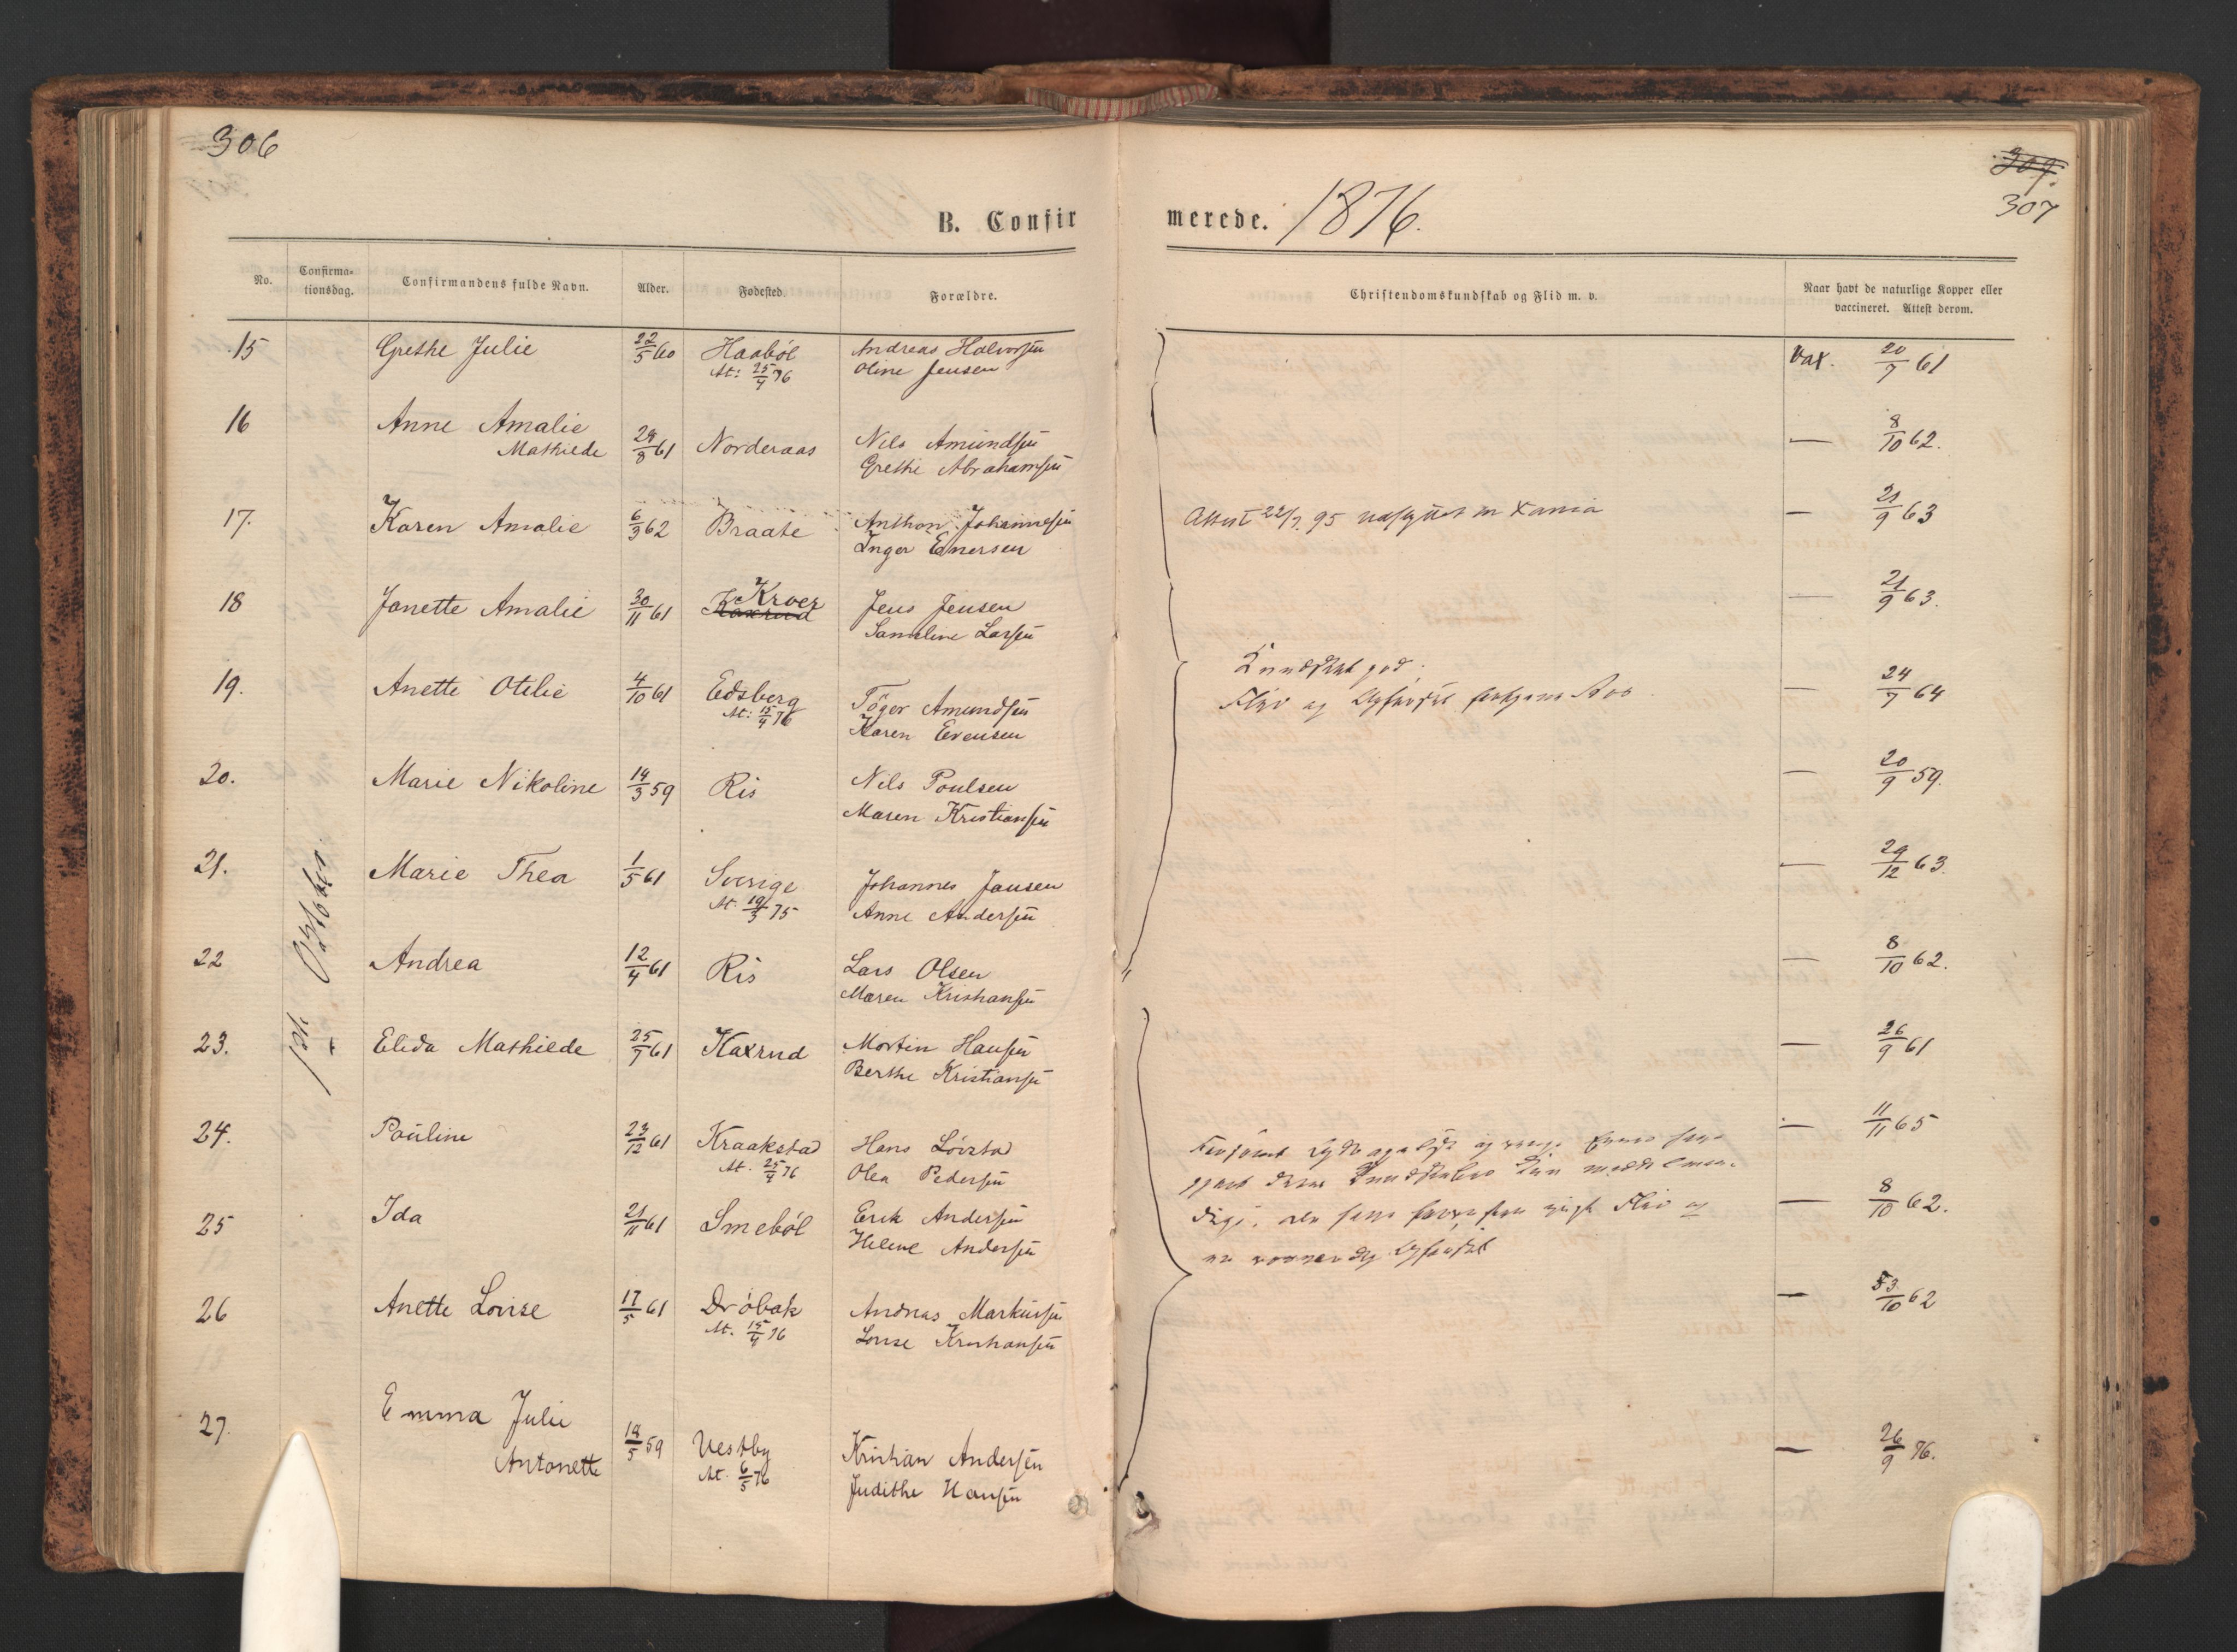 306
307.
307
B. Confirmerede. 1876.
No. Confirmationsdag. Confirmandens fulde Navn. Alder. Fødested. Forældre. Christendomskundskab og Flid m. v. Naar havt de naturlige Kopper eller vaccineret. Attest derom.
15 Grethe Julie 22/5 60 Haaböl Andreas Halvorsen vax. 20/7 61
At: 25/4 76 Oline Jensen
16 Anne Amalie
Mathilde 24/8 61 Norderaas Nils Amundsen — 8/10 62.
Grethe Abrahamsen
17. Karen Amalie 6/3 62 Braate Anthon Johannesen Attest 22/7 95 — 21/9 63
Inger Enersen
18 Janette Amalie 30/11 61 Kroer Jens Jensen — 21/9 63.
Kaxrud Sameline Larsen
19. Anette Otilie 4/10 61 Edsberg Töger Amundsen Kundskab god. — 24/7 64
At: 15/4 76 Karen Evensen Flid og
20. Marie Nikoline 14/3 59 Ris Nils Poulsen — 20/9 59.
Maren Kristiansen
21. Marie Thea 1/5 61 Sverige Johannes Jansen — 29/12 63.
At. 19/3 75 Anne Andersen
1st Oktober.
22 Andrea 12/4 61 Ris Lars Olsen — 8/10 62.
Maren Kristiansen
23. Elida Mathilde 25/7 61 Kaxrud Martin Hansen — 26/9 61
Berthe Kristiansen
24. Pauline 23/12 61 Kraakstad Hans Lövstad — 11/11 65
At. 25/4 76 Olea Pedersen
25 Ida 21/11 61 Smeböl Erik Andersen — 8/10 62.
Helene Andersen
26 Anette Lovise 17/5 61 Dröbak Andreas Markusen — 53/10 62
At. 15/4 76 Lovise Kristiansen
27. Emma Julie
Antonette 19/5 59 Vestby Kristian Andersen — 26/9 76.
At. 6/5 76 Judithe Hansen